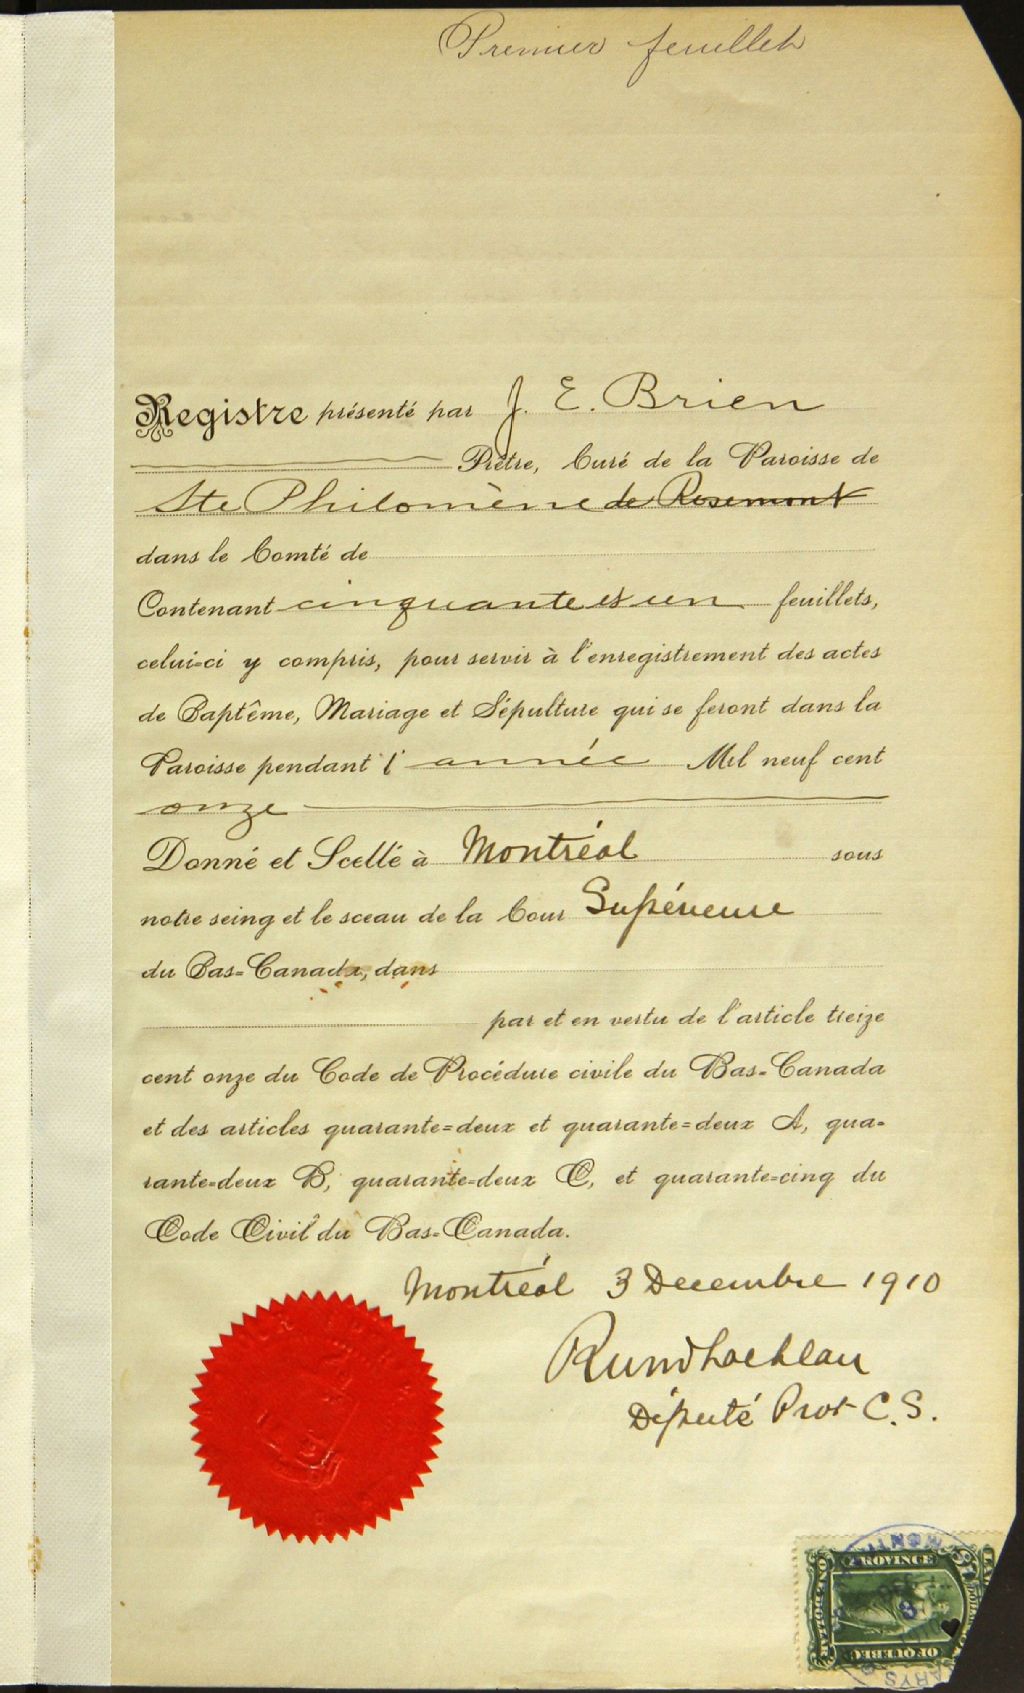 Premier feuillet
Registre présenté par J. E. Brien
Prêtre, Curé de la Paroisse de
Ste Philomène de Rosemont
dans le Comté de
Contenant cinquante et un feuillets,
celui-ci y compris, pour servir à l'enregistrement des actes
de Baptême, Mariage et Sépulture qui se feront dans la
Paroisse pendant l'année Mil neuf cent
onze
Donné et Scellé à Montréal sous
notre seing et le sceau de la Cour Supérieure
du Bas-Canada, dans
par et en vertu de l'article treize
cent onze du Code de Procédure civile du Bas-Canada
et des articles quarante-deux et quarante-deux A, qua-
rante-deux B, quarante-deux C, et quarante-cinq du
Code Civil du Bas-Canada.
Montréal 3 Decembre 1910
Député Prot C. S.
PROVINCE
OF QUEBEC
ONE DOLLAR